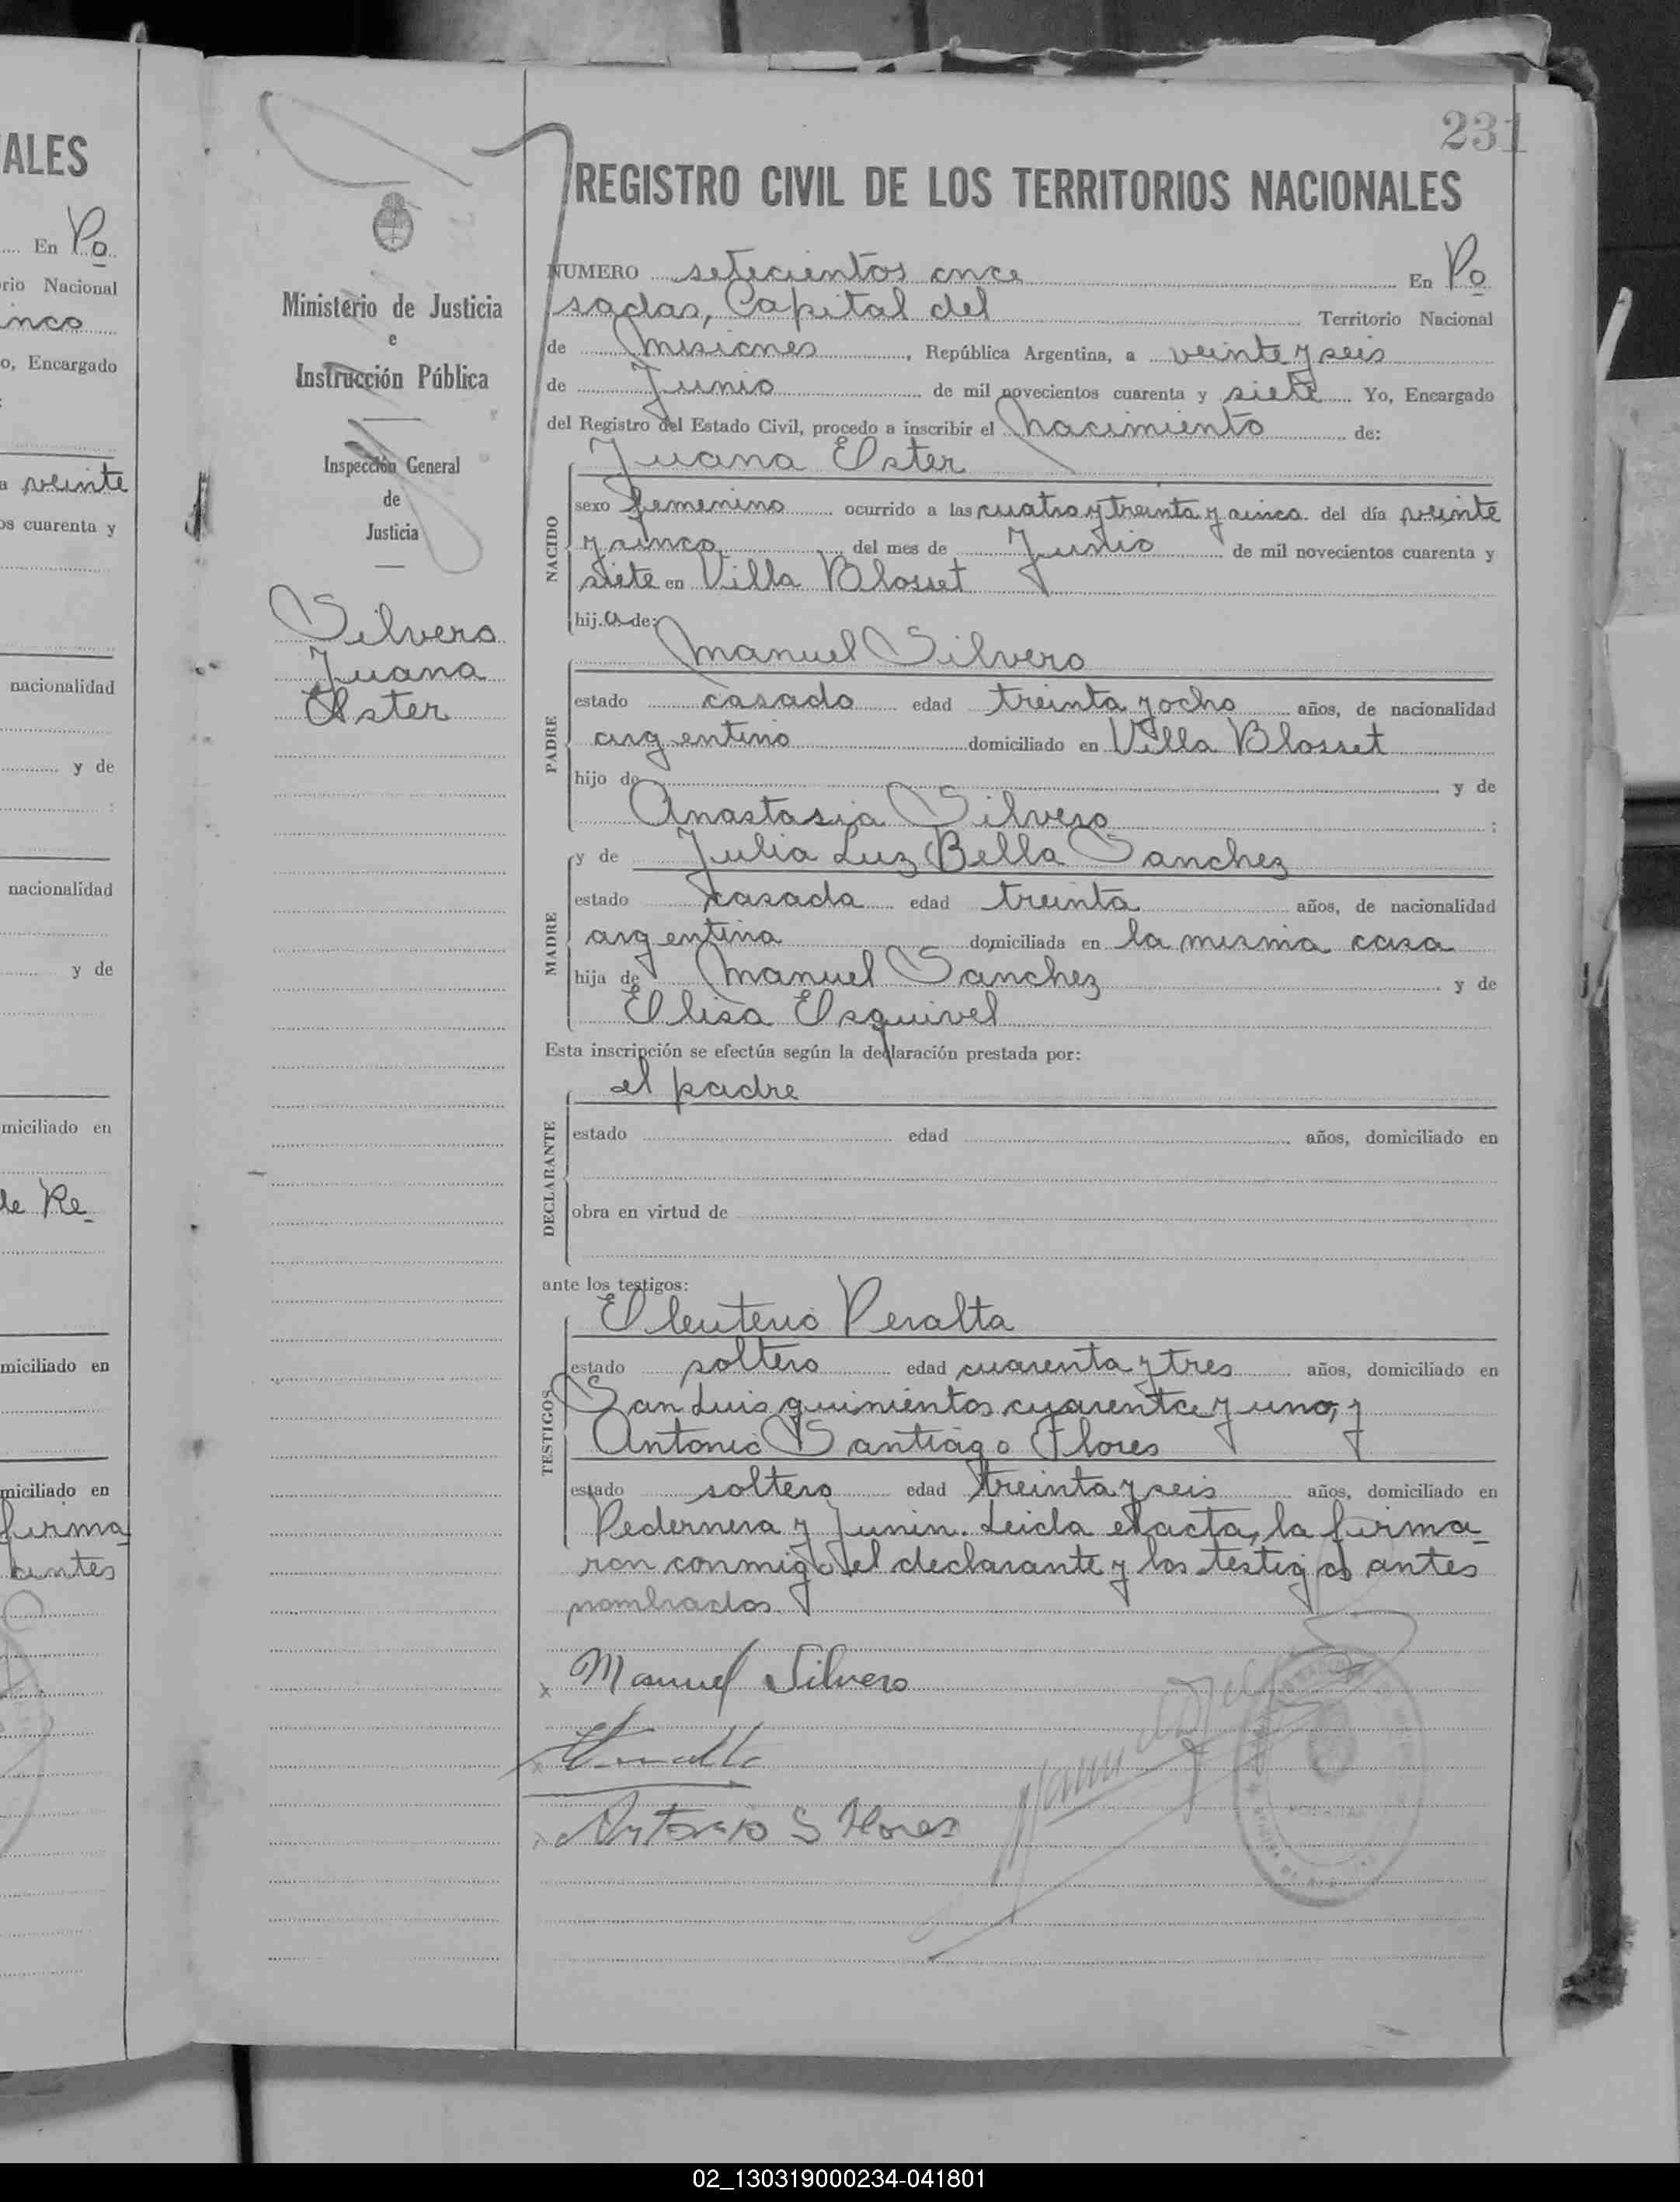 ALES
En Po
rio Nacional
inco
o, Encargado
:
a veinte
os cuarenta y
nacionalidad
y de
:
nacionalidad
y de
miciliado en
de Re
miciliado en
miciliado en
firma
antes
231
Ministerio de Justicia
e
Instrucción Pública
Inspección General
de
Justicia
Silvero
Juana
Ester
REGISTRO CIVIL DE LOS TERRITORIOS NACIONALES
NUMERO setecientos once En Po
sadas, Capital del Territorio Nacional
de Misiones, República Argentina, a veinte y seis
de Junio de mil novecientos cuarenta y siete Yo, Encargado
del Registro del Estado Civil, procedo a inscribir el Nacimiento de:
NACIDO
Juana Ester
sexo femenino ocurrido a las cuatro y treinta y cinco. del día veinte
y cinco del mes de Junio de mil novecientos cuarenta y
siete en Villa Blosset
hij.a de:
PADRE
Manuel Silvero
estado casado edad treinta y ocho años, de nacionalidad
argentino domiciliado en Villa Blosset
hijo de y de
Anastasia Silvero :
MADRE
y de Julia Luz Bella Sanchez
estado casada edad treinta años, de nacionalidad
argentina domiciliada en la misma casa
hija de Manuel Sanchez y de
Elisa Esquivel
Esta inscripción se efectúa según la declaración prestada por:
DECLARANTE
el padre
estado edad años, domiciliado en
obra en virtud de
ante los testigos:
TESTIGOS
Eleuterio Peralta
estado soltero edad cuarenta y tres años, domiciliado en
San Luis quinientos cuarenta y uno, y
Antonio Santiago Flores
estado soltero edad treinta y seis años, domiciliado en
Pedernera y Junin. Leida el acta, la firma-
ron conmigo el declarante y los testigos antes
nombrados.
x Manuel Silvero
Antonio S Flores
02_130319000234-041801